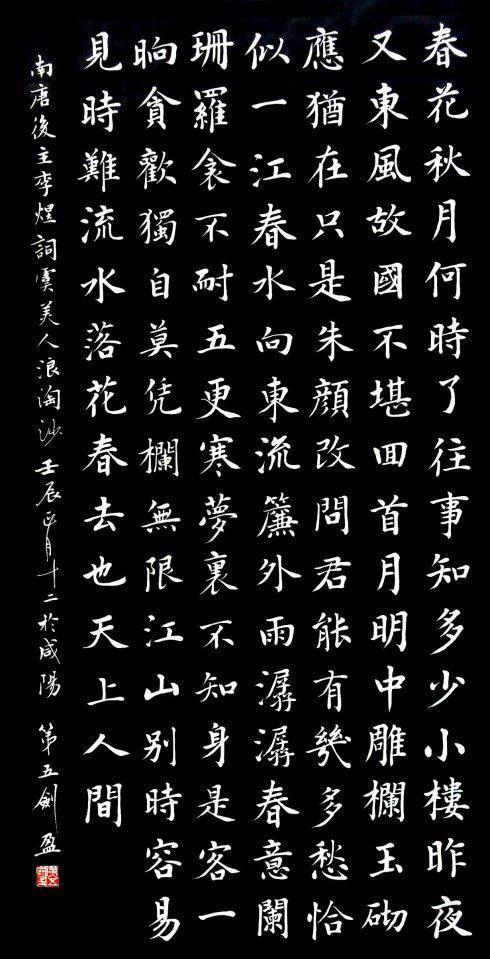 春花秋月何時了往事知多少小樓昨夜
又東風故國不堪回首月明中雕欄玉砌
應猶在只是朱顏改問君能有幾多愁恰
似一江春水向東流簾外雨潺潺春意闌
珊羅衾不耐五更寒夢裏不知身是客一
晌貪歡獨自莫凭欄無限江山別時容易
見時難流水落花春去也天上人間
南唐後主李煜詞虞美人浪淘沙壬辰正月十二於咸陽 第五劍盈